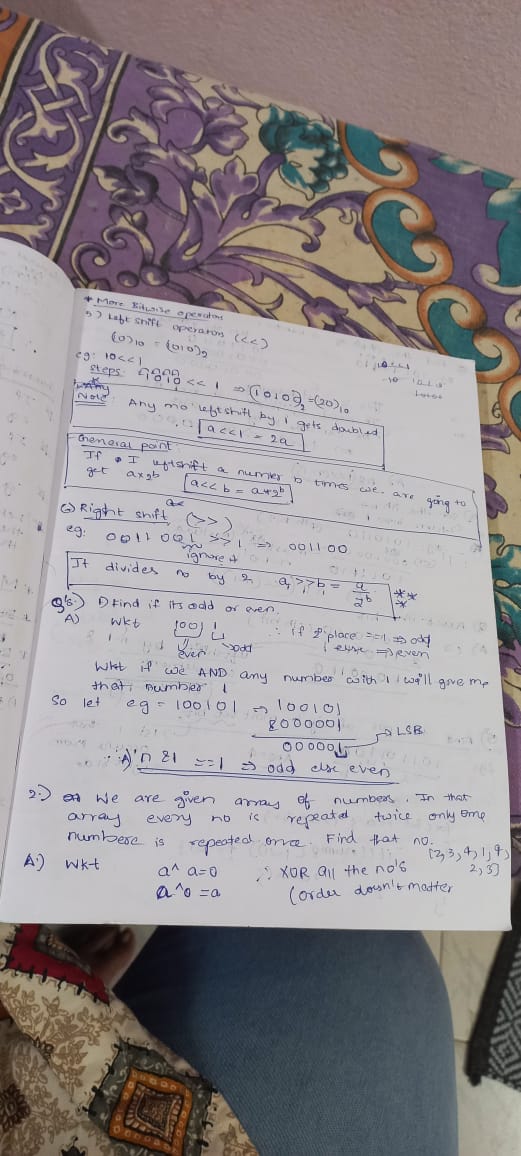 * More Bitwise operators
5) Left shift operators (<<)
(10)10 = (1010)2
eg: 10<<1
Steps 1010 << 1 ⇒ (10100)2 = (20)10
Note: Any no leftshift by 1 gets doubled
∴ a<<1 = 2a
General point:
If I leftshift a number b times we are going to
get a×2b a<<b = a*2^b
6) Right shift (>>)
eg: 0011001 >> 1 ⇒ 001100
ignored
It divides no by 2 a>>b = a/2^b ***
Q's:) 1) Find if its odd or even.
A) Wkt 1001 ∴ if 1's place ==1 ⇒ odd
even odd else ⇒ even
Wkt if we AND any number with 1 we'll gove me
that number
So let eg = 100101 ⇒ 100101
&000001 → LSB
000001
∴ A) n &1 ==1 ⇒ odd else even
2:) We are given array of numbers. In that
array every no is repeated twice only one
numbere is repeated once. Find that no.
[2,3,4,1,4,
2,3]
A:) Wkt a^a=0 ∴ XOR all the no's
a^0=a (order doesn't matter